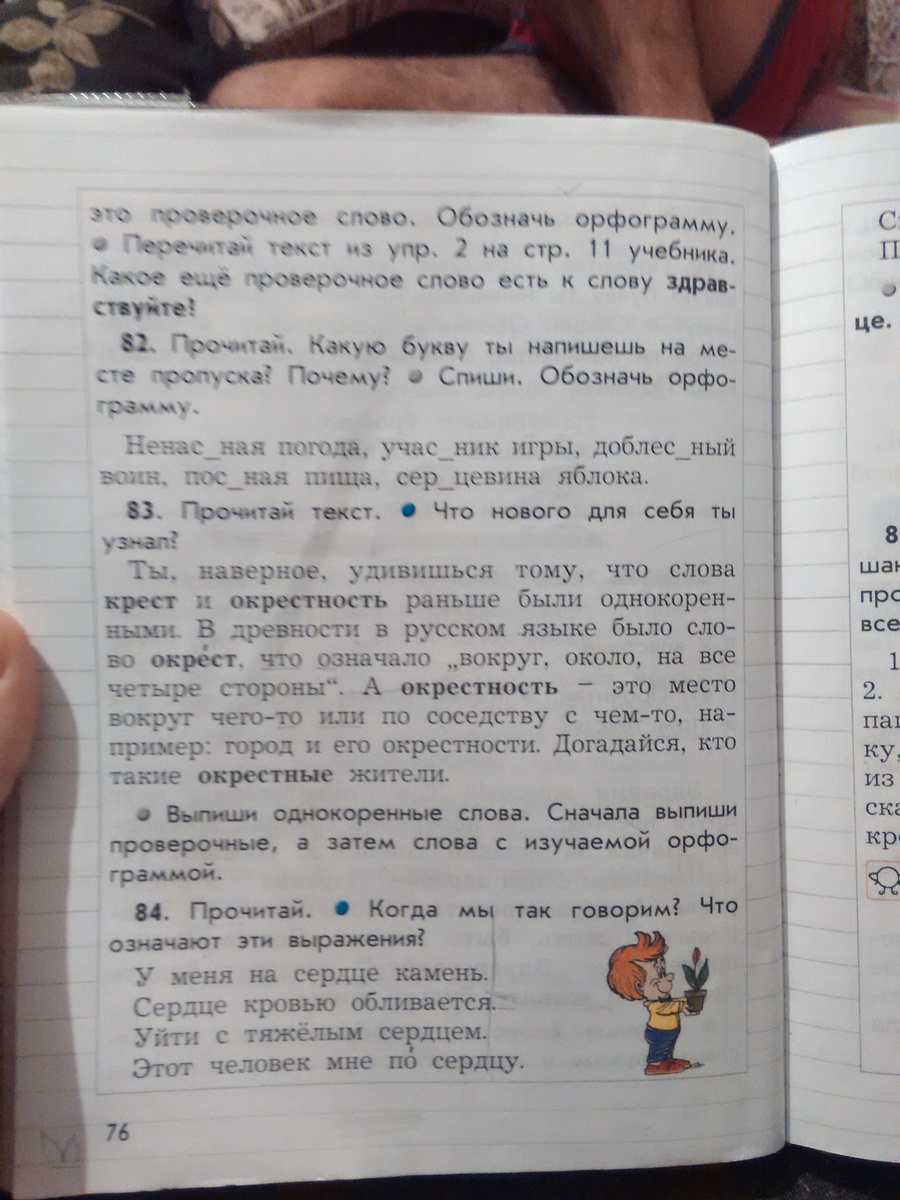 это проверочное слово. Обозначь орфограмму.
● Перечитай текст из упр. 2 на стр. 11 учебника.
Какое ещё проверочное слово есть к слову здрав-
ствуйте!
82. Прочитай. Какую букву ты напишешь на ме-
сте пропуска? Почему? ● Спиши. Обозначь орфо-
грамму.
Ненас_ная погода, учас_ник игры, доблес_ный
воин, пос_ная пища, сер_цевина яблока.
83. Прочитай текст. ● Что нового для себя ты
узнал?
Ты, наверное, удивишься тому, что слова
крест и окрестность раньше были однокорен-
ными. В древности в русском языке было сло-
во окре́ст, что означало „вокруг, около, на все
четыре стороны“. А окрестность – это место
вокруг чего-то или по соседству с чем-то, на-
пример: город и его окрестности. Догадайся, кто
такие окрестные жители.
● Выпиши однокоренные слова. Сначала выпиши
проверочные, а затем слова с изучаемой орфо-
граммой.
84. Прочитай. ● Когда мы так говорим? Что
означают эти выражения?
У меня на сердце камень.
Сердце кровью обливается.
Уйти с тяжёлым сердцем.
Этот человек мне по́ сердцу.
76
це.
8
1
2.
ку,
из